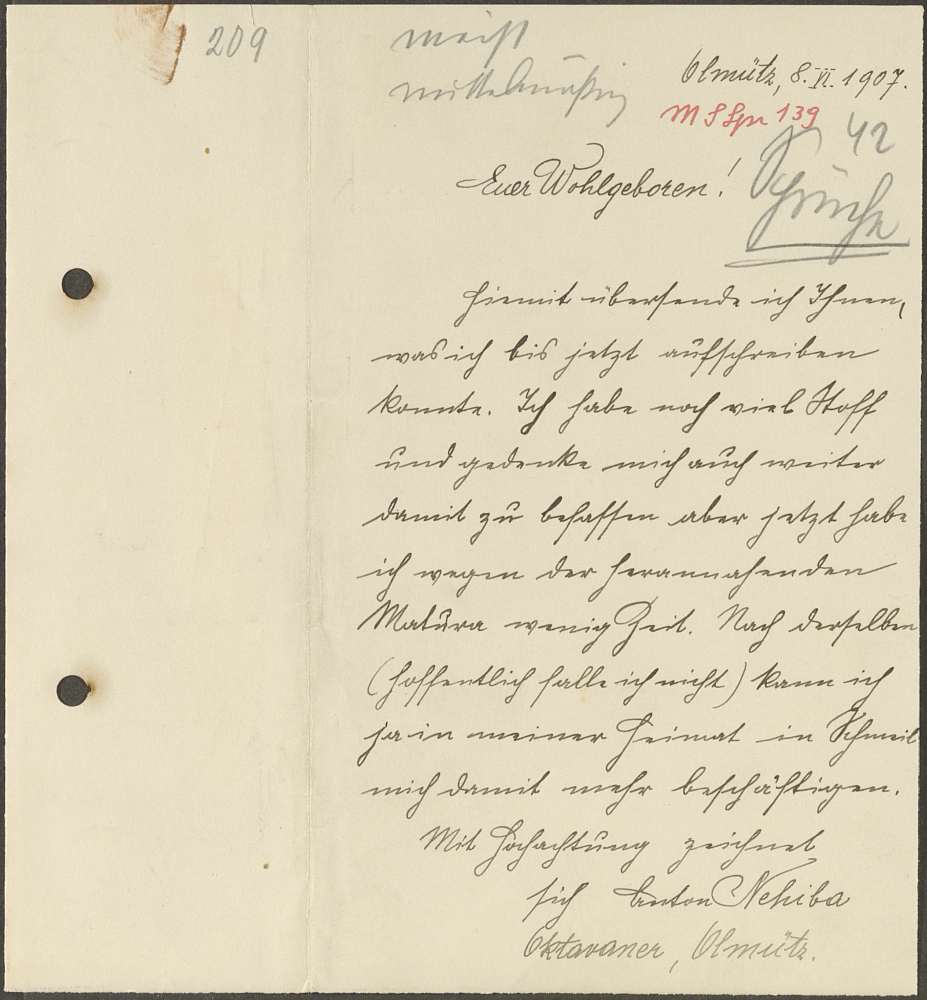 209
meist
mittelmäßig
Olmütz, 8. VI. 1907.
M S Spr 139
42
Sprüche
Euer Wohlgeboren!
Hiemit übersende ich Ihnen,
was ich bis jetzt aufschreiben
konnte. Ich habe noch viel Stoff
und gedenke mich auch weiter
damit zu befassen aber jetzt habe
ich wegen der herannahenden
Matura wenig Zeit. Nach derselben
(hoffentlich falle ich nicht) kann ich
ja in meiner Heimat in Schmeil
mich damit mehr beschäftigen.
Mit Hochachtung zeichnet
sich Anton Nehiba
Oktavaner, Olmütz.